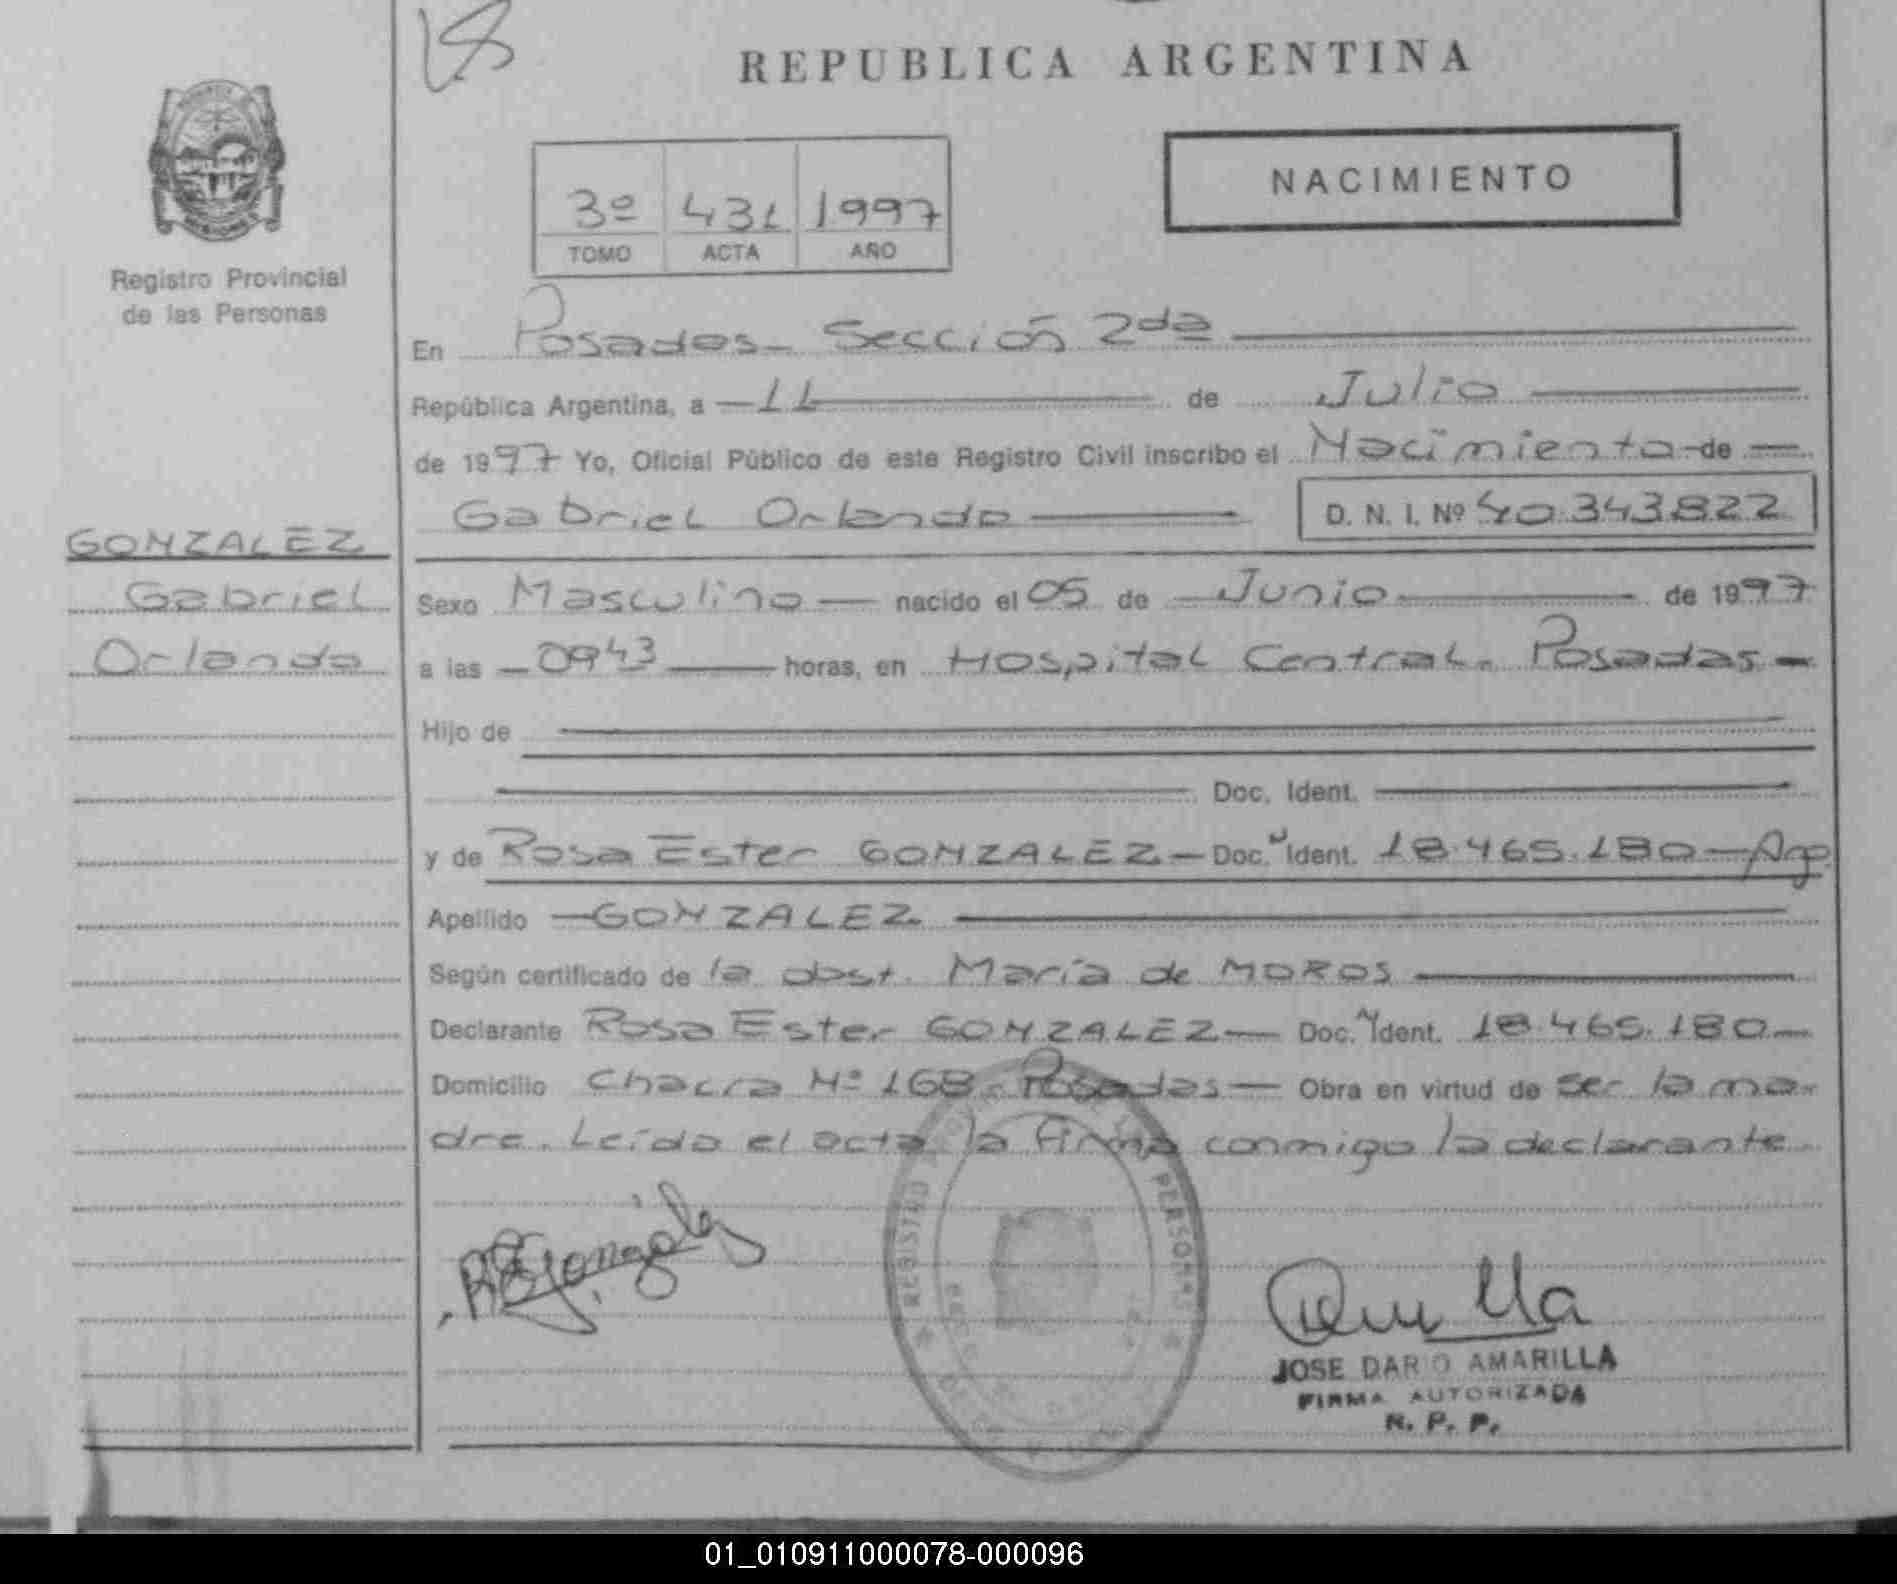 REPUBLICA ARGENTINA
NACIMIENTO
3º 431 1997
TOMO ACTA AÑO
Registro Provincial
de las Personas
En Posadas - Sección 2da
República Argentina, a 11 de Julio
de 1997 Yo, Oficial Público de este Registro Civil inscribo el Nacimiento de
Gabriel Orlando D. N. I. Nº 40.343.822
GONZALEZ
Gabriel
Orlando
Sexo Masculino nacido el 05 de Junio de 1997
a las 0943 horas, en Hospital Central. Posadas
Hijo de
Doc. Ident.
y de Rosa Ester GONZALEZ Doc. Ident. 18.465.180 - Arg.
Apellido GONZALEZ
Según certificado de la obst. María de MOROS
Declarante Rosa Ester GONZALEZ Doc. Ident. 18.465.180
Domicilio Chacra Nº 168. Posadas Obra en virtud de ser la ma-
dre. Leída el acta la firma conmigo la declarante
REGISTRO PERSONAS
JOSE DARIO AMARILLA
FIRMA AUTORIZADA
R. P. P.
01_010911000078-000096